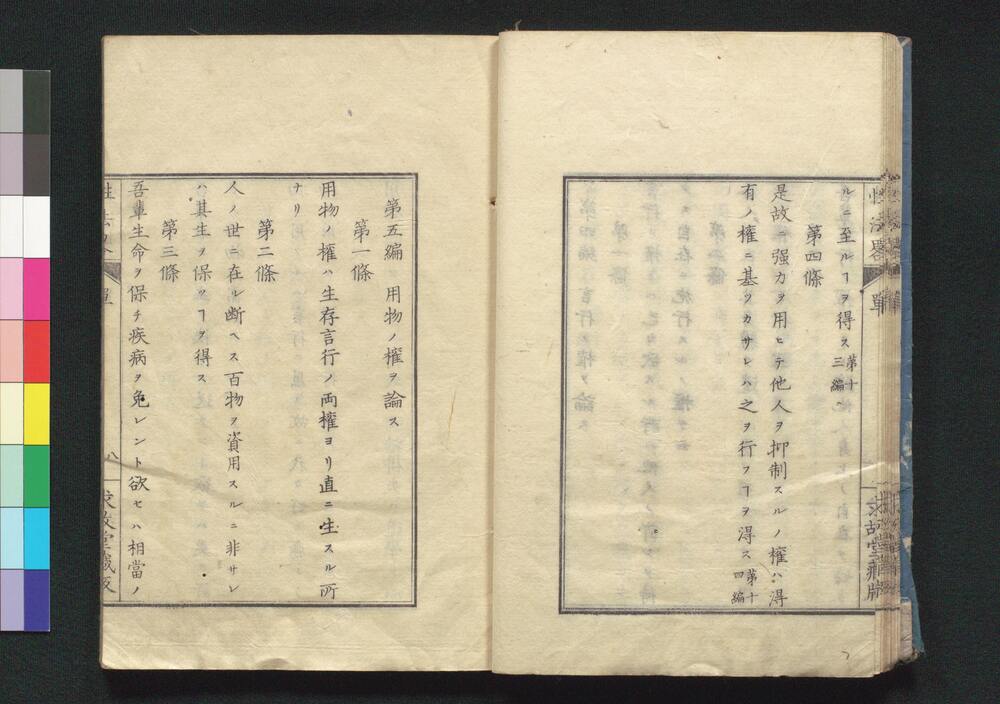 ルニ至ルヿヲ得ス第十三編
第四條
是故ニ强力ヲ用ヒテ他人ヲ抑制スルノ權ハ得
有ノ權ニ基ツカサレハ之ヲ行フヿヲ得ス第十四編
性法略
單
求故堂藏版
第五編 用物ノ權ヲ論ス
第一條
用物ノ權ハ生存言行ノ兩權ヨリ直ニ生スル所
ナリ
第二條
人ノ世ニ在ル斷ヘス百物ヲ資用スルニ非サレ
ハ其生ヲ保ツヿヲ得ス
第三條
吾輩生命ヲ保チ疾病ヲ免レント欲セハ相當ノ
性法略
單
八
求故堂藏版